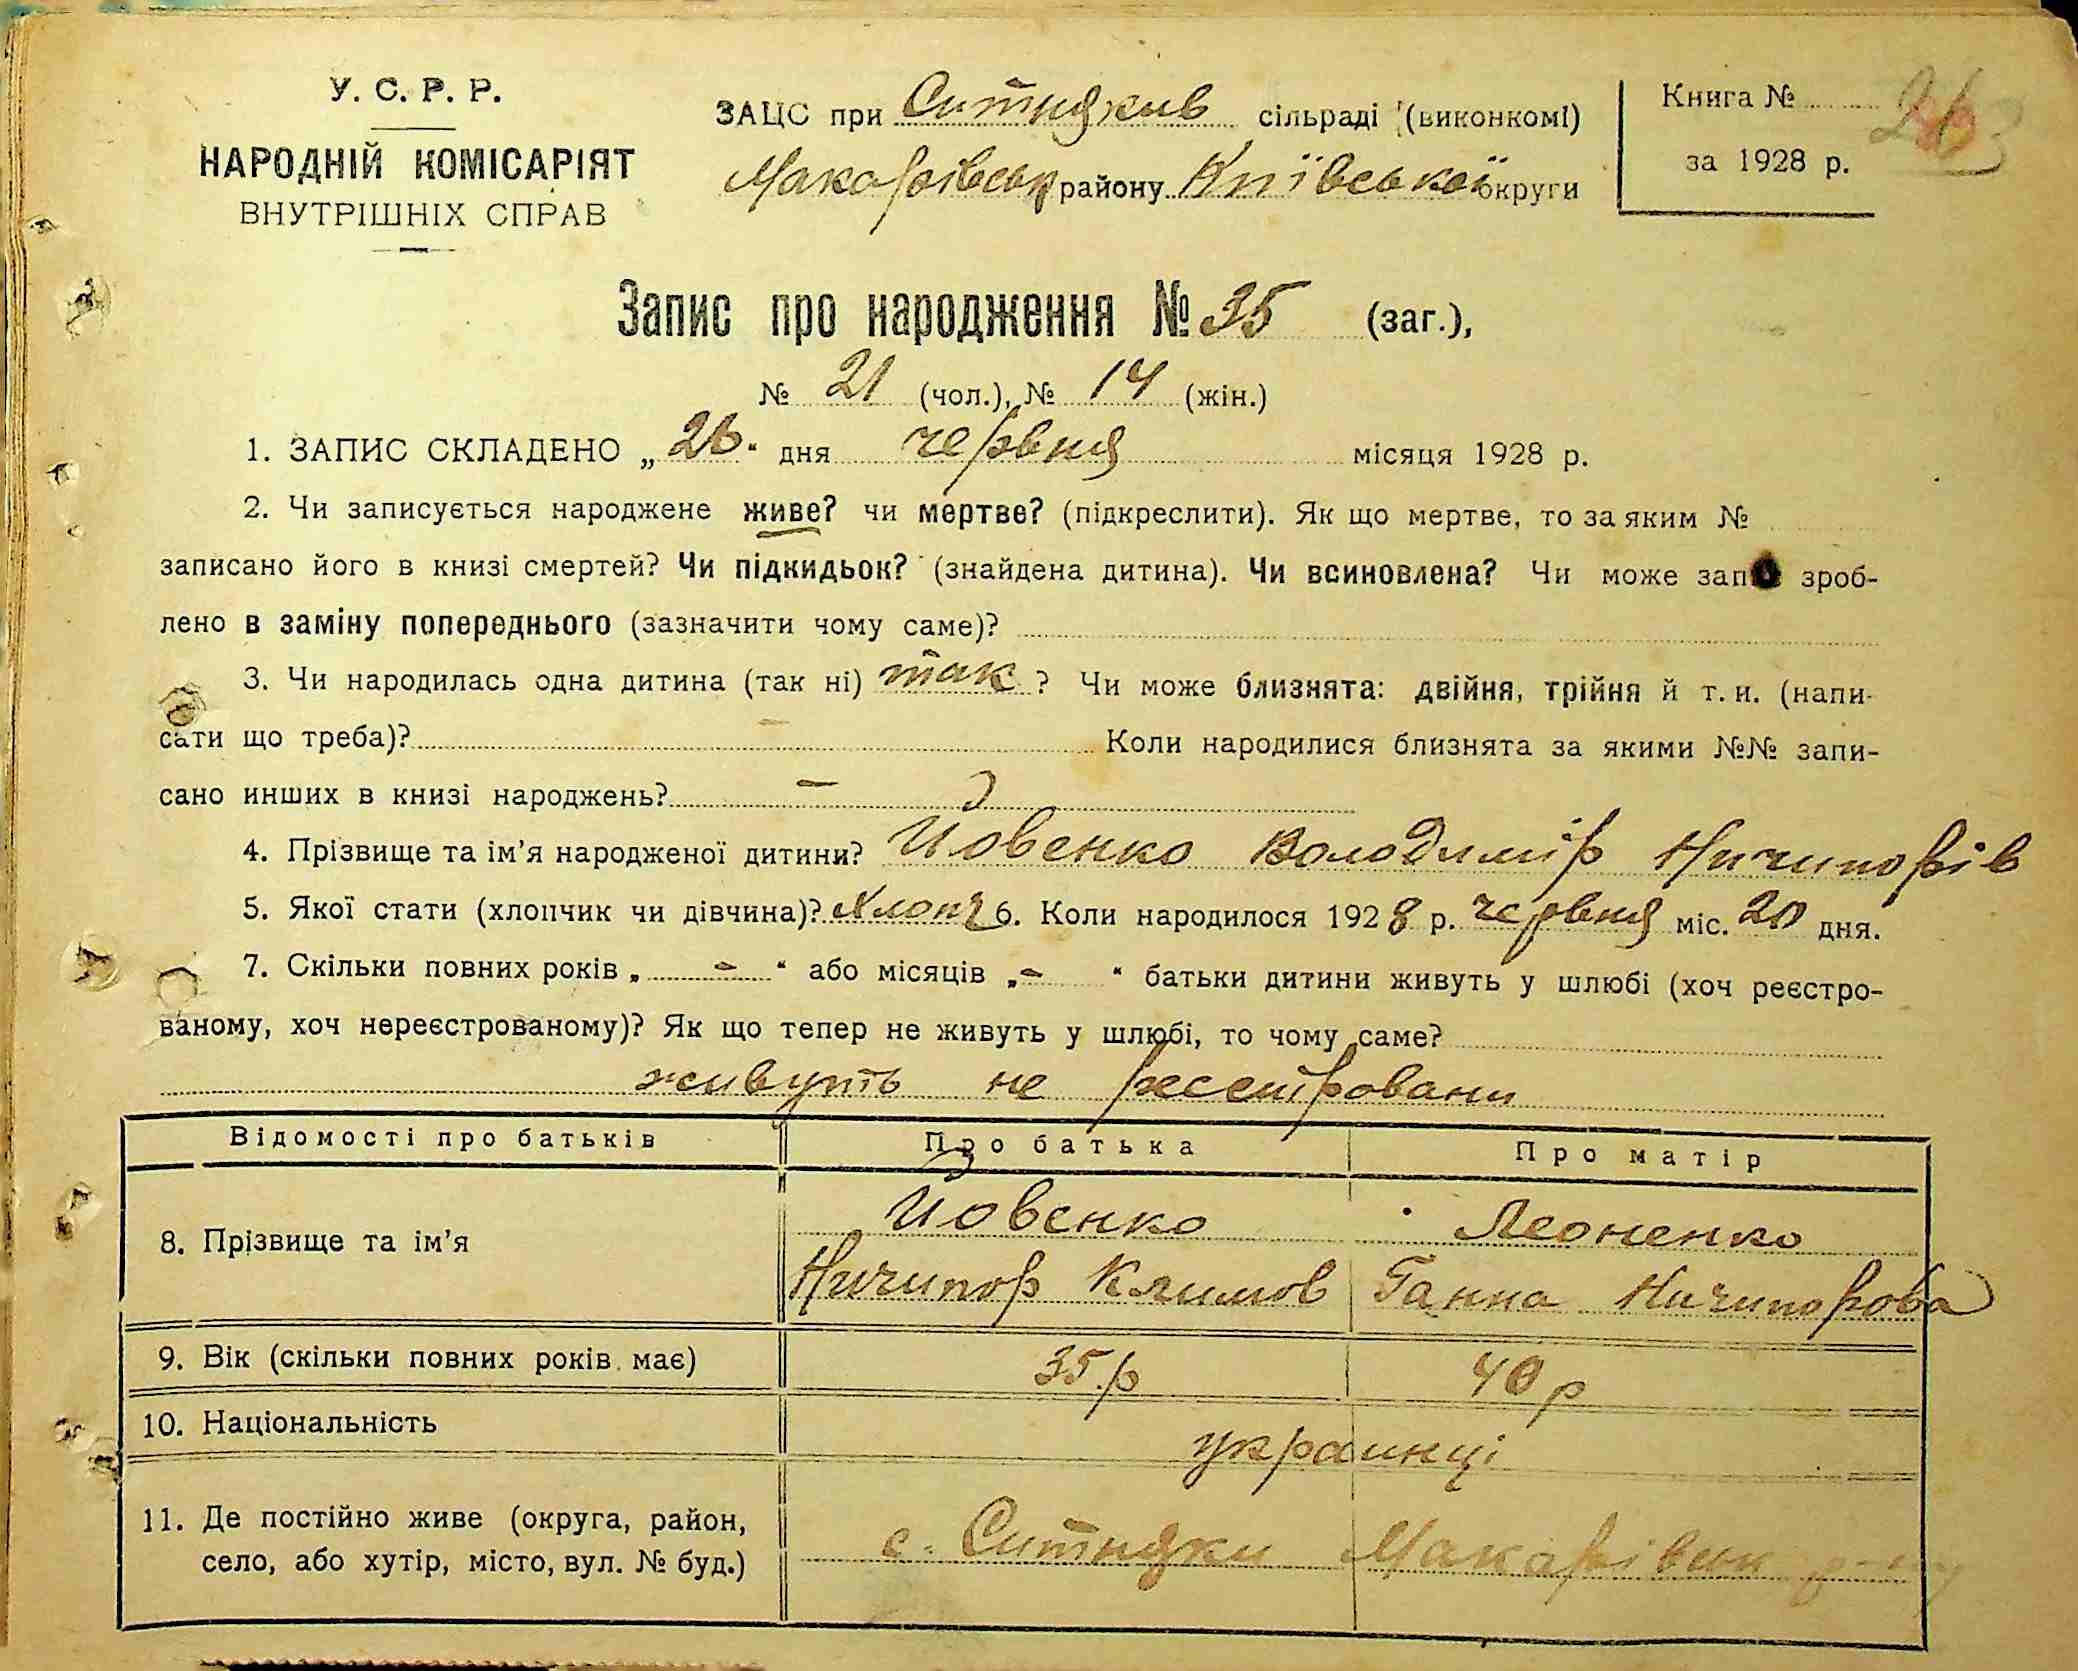 У. С. Р. Р.
НАРОДНІЙ КОМІСАРІЯТ
ВНУТРІШНІХ СПРАВ
ЗАЦС при Ситняков сільраді (виконкомі)
Макарівськ району Київської округи
Книга №
за 1928 р.
Запис про народження № 35 (заг.),
№ 21 (чол.), № 14 (жін.)
1. ЗАПИС СКЛАДЕНО „26“ дня червня місяця 1928 р.
2. Чи записується народжене живе? чи мертве? (підкреслити). Як що мертве, то за яким №
записано його в книзі смертей? Чи підкидьок? (знайдена дитина). Чи всиновлена? Чи може зроб-
лено в заміну попереднього (зазначити чому саме)?
3. Чи народилась одна дитина (так ні) так ? Чи може близнята: двійня, трійня й т. и. (напи-
сати що треба)? Коли народилися близнята за якими №№ запи-
сано инших в книзі народжень? –
4. Прізвище та ім'я народженої дитини? Йовенко Володимір Ничипорів
5. Якої стати (хлопчик чи дівчина)? Хлопч 6. Коли народилося 1928 р. червня міс. 20 дня.
7. Скільки повних років „ – “ або місяців „ – “ батьки дитини живуть у шлюбі (хоч реєстро-
ваному, хоч нереєстрованому)? Як що тепер не живуть у шлюбі, то чому саме?
живуть не реєстровани
Відомості про батьків Про батька Про матір
8. Прізвище та ім'я Йовенко Леоненко
Ничипор Климов Ганна Ничипорова
9. Вік (скільки повних років має) 35 р 40 р
10. Національність украинці
11. Де постійно живе (округа, район,
село, або хутір, місто, вул. № буд.) с. Ситняки Макарівськ р-ну